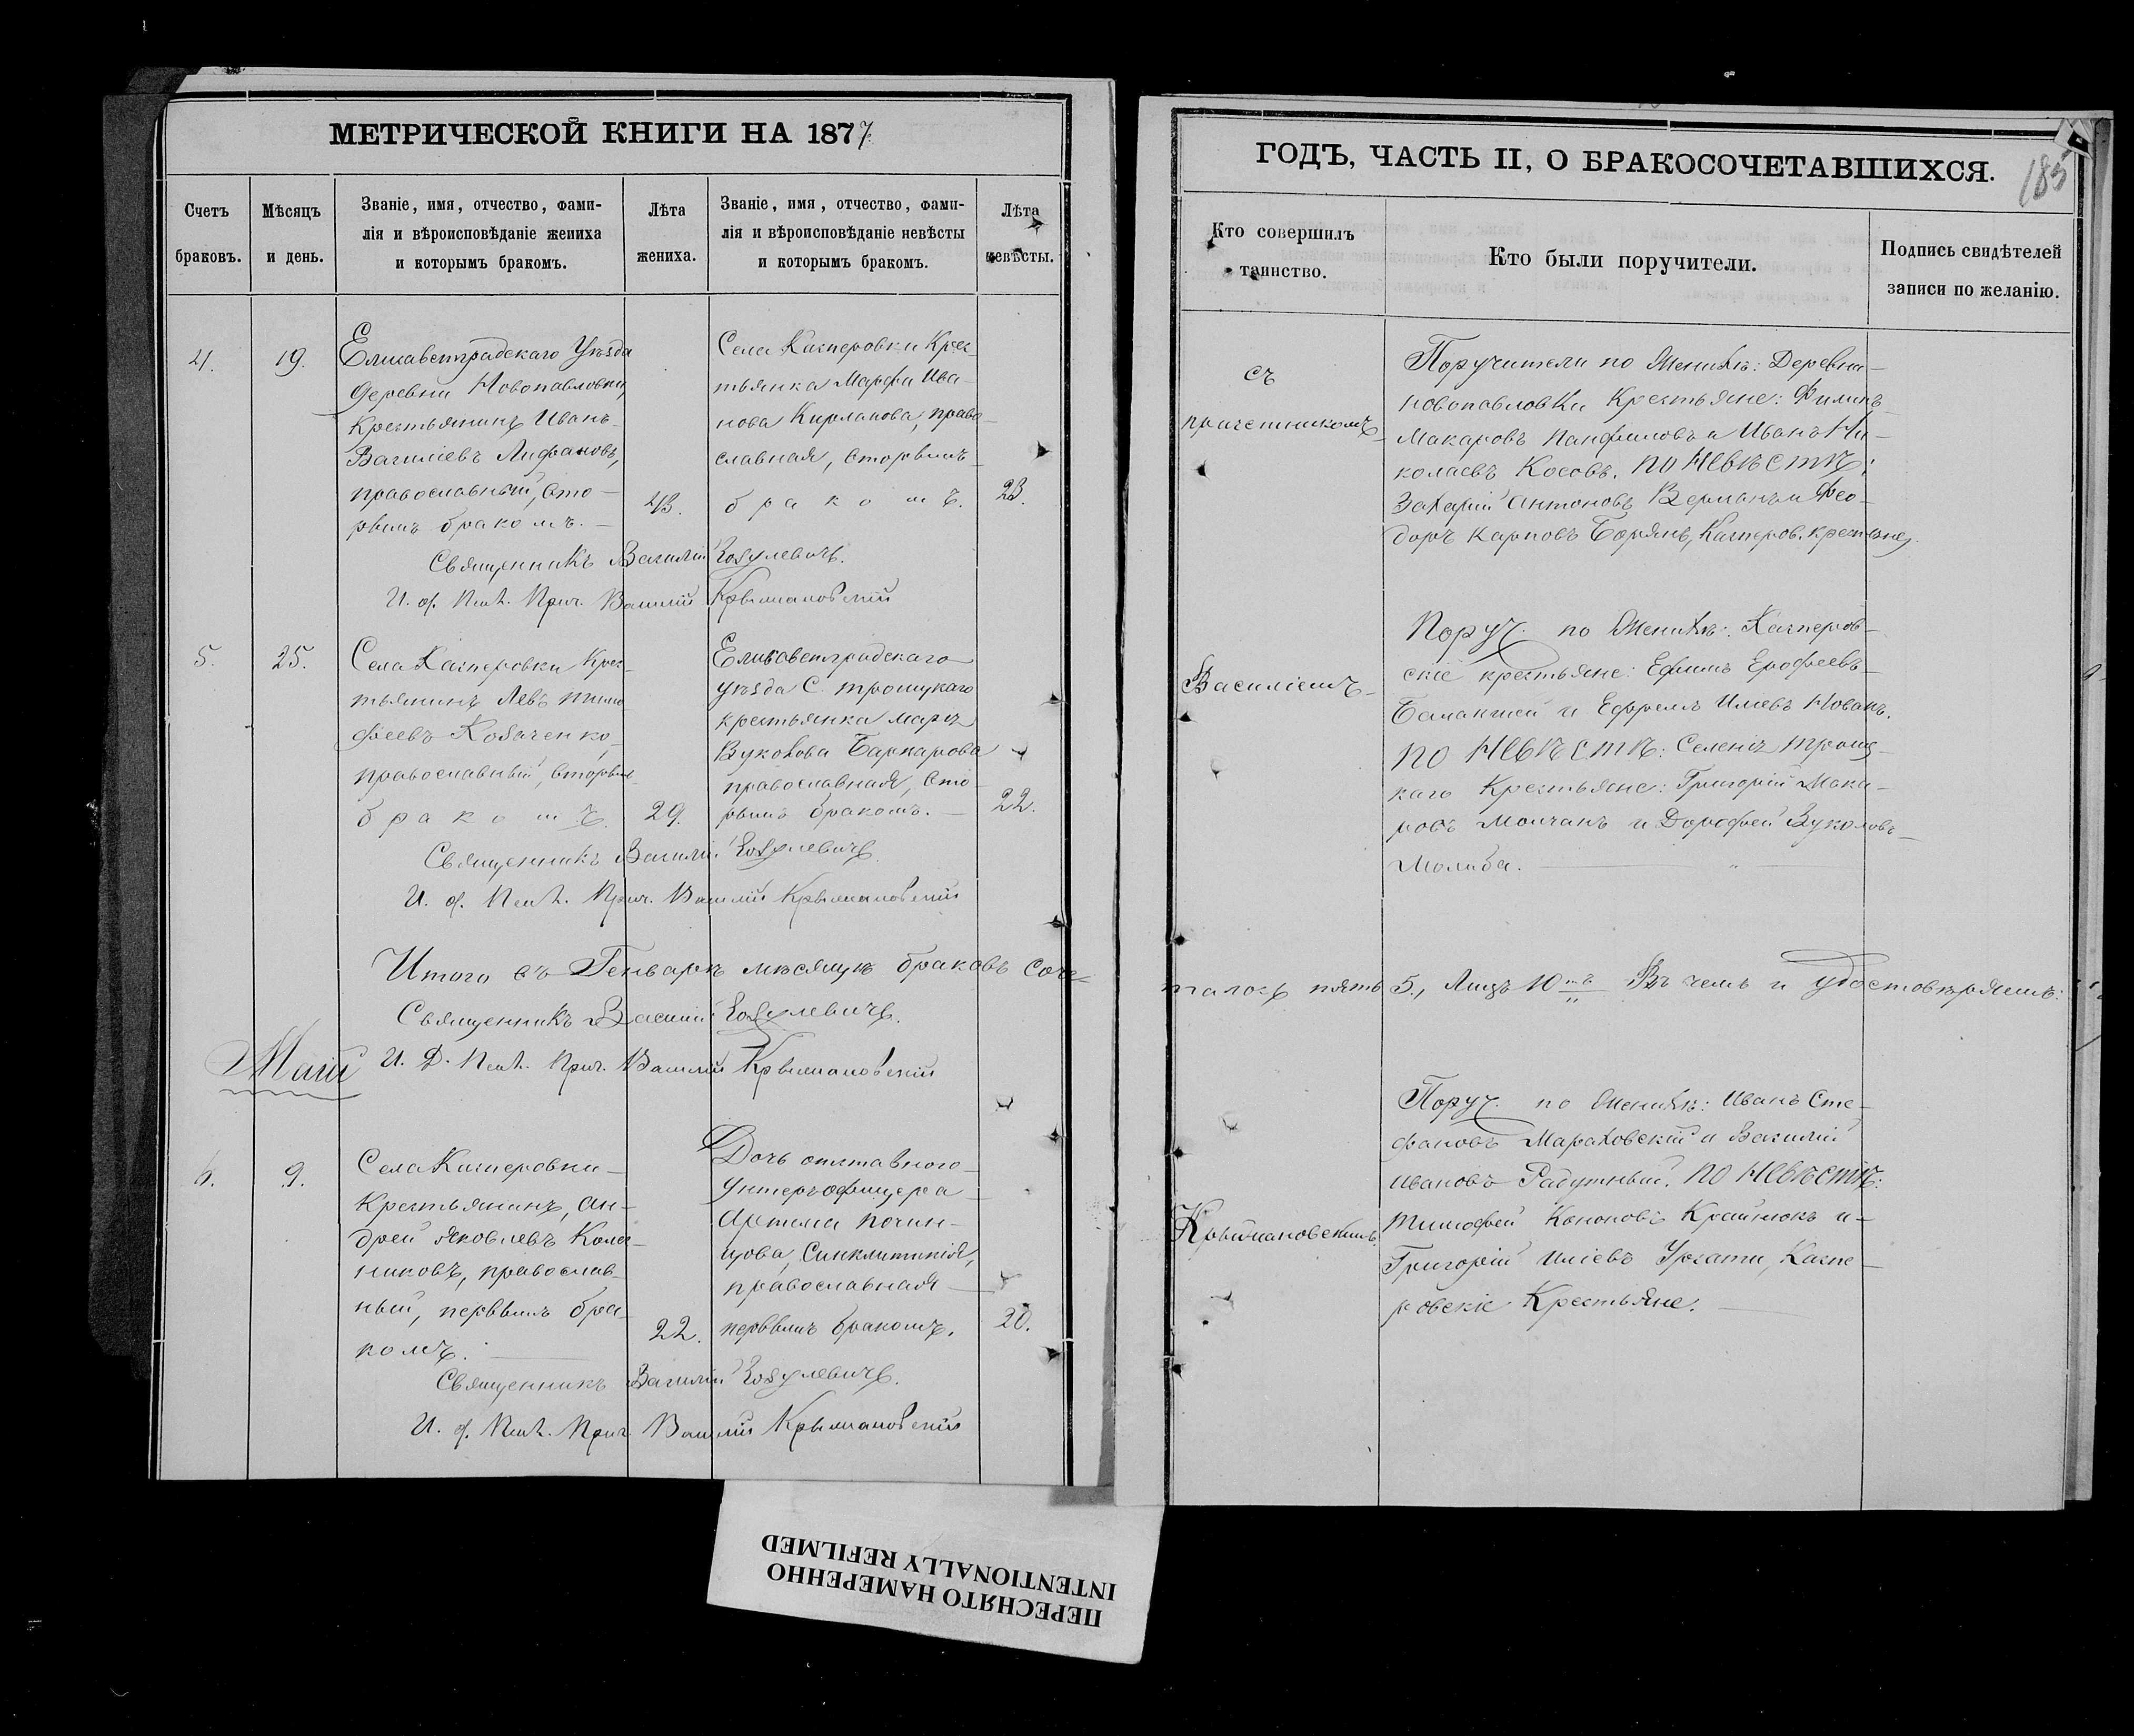 МЕТРИЧЕСКОЙ КНИГИ НА 1877
Счетъ
браковъ.
Мѣсяцъ
и день.
Званіе, имя, отчество, фами-
лія и вѣроисповѣданіе жениха
и которымъ бракомъ.
Лѣта
жениха.
Званіе, имя, отчество, фами-
лія и вѣроисповѣданіе невѣсты
и которымъ бракомъ.
Лѣта
невѣсты.
4.
19.
Елисаветградскаго Уѣзда
деревни Новопавловки,
Крестьянинъ Иванъ
Василіевъ
православный, вто-
рымъ бракомъ.
43.
Села Касперовки Крес-
тьянка Марфа Ива-
нова Кирланова, право-
славная, вторымъ
бракомъ.
23.
Священникъ Василій
И. д. Псал. Прич. Василій Крыжановскій
5.
25.
Села Касперовки Крес-
тьянинъ Левъ Тимо-
феевъ Кобаченко,
православный, вторымъ
бракомъ.
29.
Елисаветградскаго
уѣзда С. Троицкаго
крестьянка
Вуколова
православная, вто-
рымъ бракомъ.
22.
Священникъ Василій
И. д. Псал. Прич. Василій Крыжановскій
Итого въ Генварѣ мѣсяцѣ браковъ соче-
Священникъ Василій
И. Д. Псал. Прич. Василій Крыжановскій
Маій
6.
9.
Села Касперовки
Крестьянинъ, Ан-
дрей Яковлевъ Колес-
никовъ, православ-
ный, первымъ бра-
комъ.
22.
Дочь отставного
Унтеръ-офицера
Артема Почин-
цова, Синклитикія,
православная
первымъ бракомъ.
20.
Священникъ Василій
И. д. Псал. Прич. Василій Крыжановскій
ГОДЪ, ЧАСТЬ II, О БРАКОСОЧЕТАВШИХСЯ.
185
Кто совершилъ
таинство.
Кто были поручители.
Подпись свидѣтелей
записи по желанію.
съ
причетникомъ
Поручители по Женихѣ: Деревни
Новопавловки Крестьяне: Филипъ
Макаровъ Панфиловъ и Иванъ Ни-
колаевъ Косовъ. по Невѣстѣ:
Захарій Антоновъ и Фео-
доръ Карповъ Касперов. крестьяне
Василіемъ
Поруч. по Женихѣ: Касперов-
скіе крестьяне: Ефимъ Ерофеевъ
и Ефремъ Новакъ.
по Невѣстѣ: Селенія Троиц-
каго Крестьяне: Григорій Мака-
ровъ Молчанъ и Дорофей Вуколовъ
талось пять 5., Лицъ 10ть Въ чемъ и удостовѣряемъ:
Крыжановскимъ
Поруч. по Женихѣ: Иванъ Сте-
фановъ Мараховскій и Василій
Ивановъ Рабутный. по Невѣстѣ:
Тимофей Кононовъ Крайнюкъ и
Григорій Иліевъ Каспе-
ровскіе Крестьяне.
ПЕРЕСНЯТО НАМЕРЕННО
INTENTIONALLY REFILMED